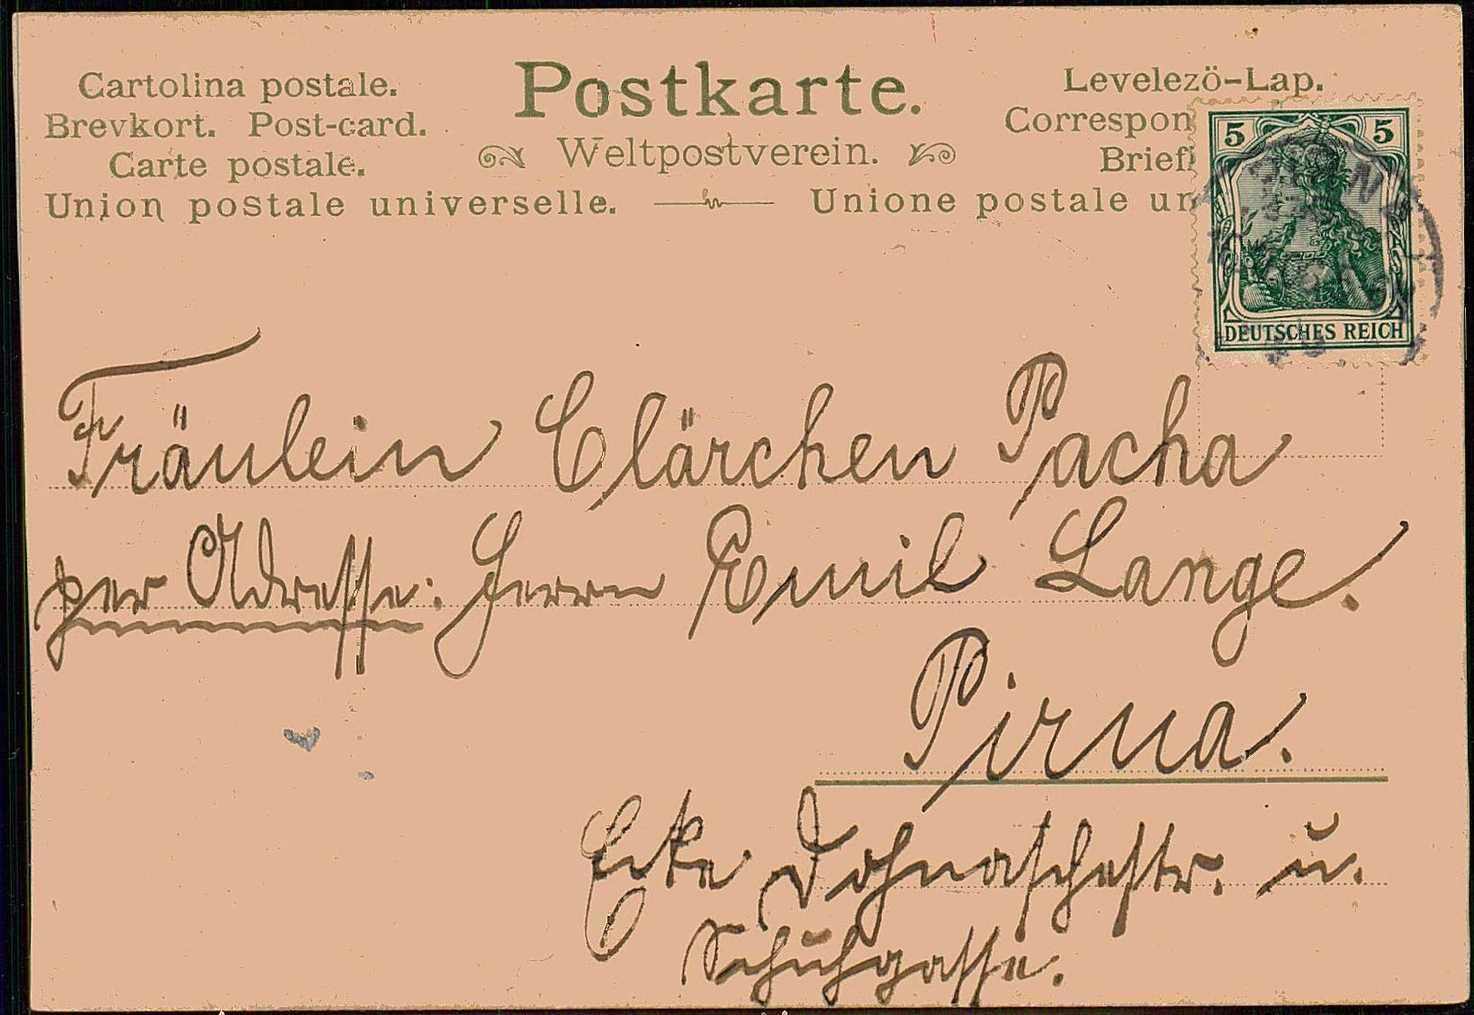 Cartolina postale.
Brevkort. Post-card.
Carte postale.
Postkarte.
Weltpostverein.
Levelezö-Lap.
Correspon
Brief
Union postale universelle. Unione postale un
5 5
DEUTSCHES REICH
Fräulein Clärchen Pacha
per Adresse: Herrn Emil Lange.
Pirna.
Ecke Dohnaschestr. u.
Schuhgasse.